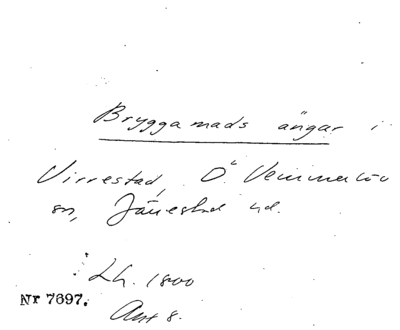 Bryggamads ängar i
Virrestad, Ö. Vemmerlöv
sn, Järrestad hd.
Lh. 1800
Nr 7697.
Ant 8.